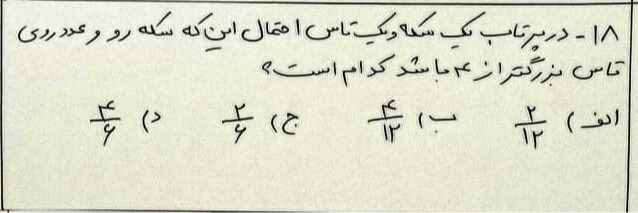 ۱۸- در پرتاب یک سکه و یک تاس احتمال این که سکه رو و عدد روی
تاس بزرگتر از ۴ باشد کدام است؟
الف) ۲/۱۲ ب) ۴/۱۲ ج) ۲/۶ د) ۴/۶